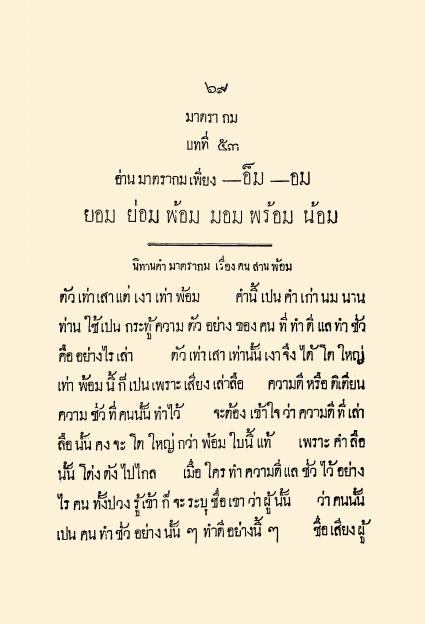 ๖๙
มาตรา กม
บทที่ ๕๓
อ่าน มาตรากม เพี่ยง —อ็ม —อม
ยอม ย่อม พ้อม มอม พร้อม น้อม
นิทานคำ มาตรากม เรื่อง คน สาน พ้อม
ตัว เท่า เสา แต่ เงา เท่า พ้อม คำนี้ เปน คำ เก่า นม นาน
ท่าน ใช้ เปน กระทู้ ความ ตัว อย่าง ของ คน ที่ ทำ ดี แล ทำ ชั่ว
คือ อย่างไร เล่า ตัว เท่า เสา เท่านั้น เงา จึง ได้ โต ใหญ่
เท่า พ้อม นี้ ก็ เปน เพราะ เสียง เล่าลือ ความดี หรือ ติเตียน
ความ ชั่ว ที่ คนนั้น ทำไว้ จะต้อง เข้าใจ ว่า ความดี ที่ เล่า
ลือ นั้น คง จะ โต ใหญ่ กว่า พ้อม ใบนี้ แท้ เพราะ คำ ลือ
นั้น โด่ง ดัง ไป ไกล เมื่อ ใคร ทำ ความดี แล ชั่ว ไว้ อย่าง
ไร คน ทั้งปวง รู้ เข้า ก็ จะ ระบุ ชื่อ เขา ว่า ผู้ นั้น ว่า คนนั้น
เปน คน ทำ ชั่ว อย่าง นั้น ๆ ทำดี อย่างนี้ ๆ ชื่อ เสียง ผู้